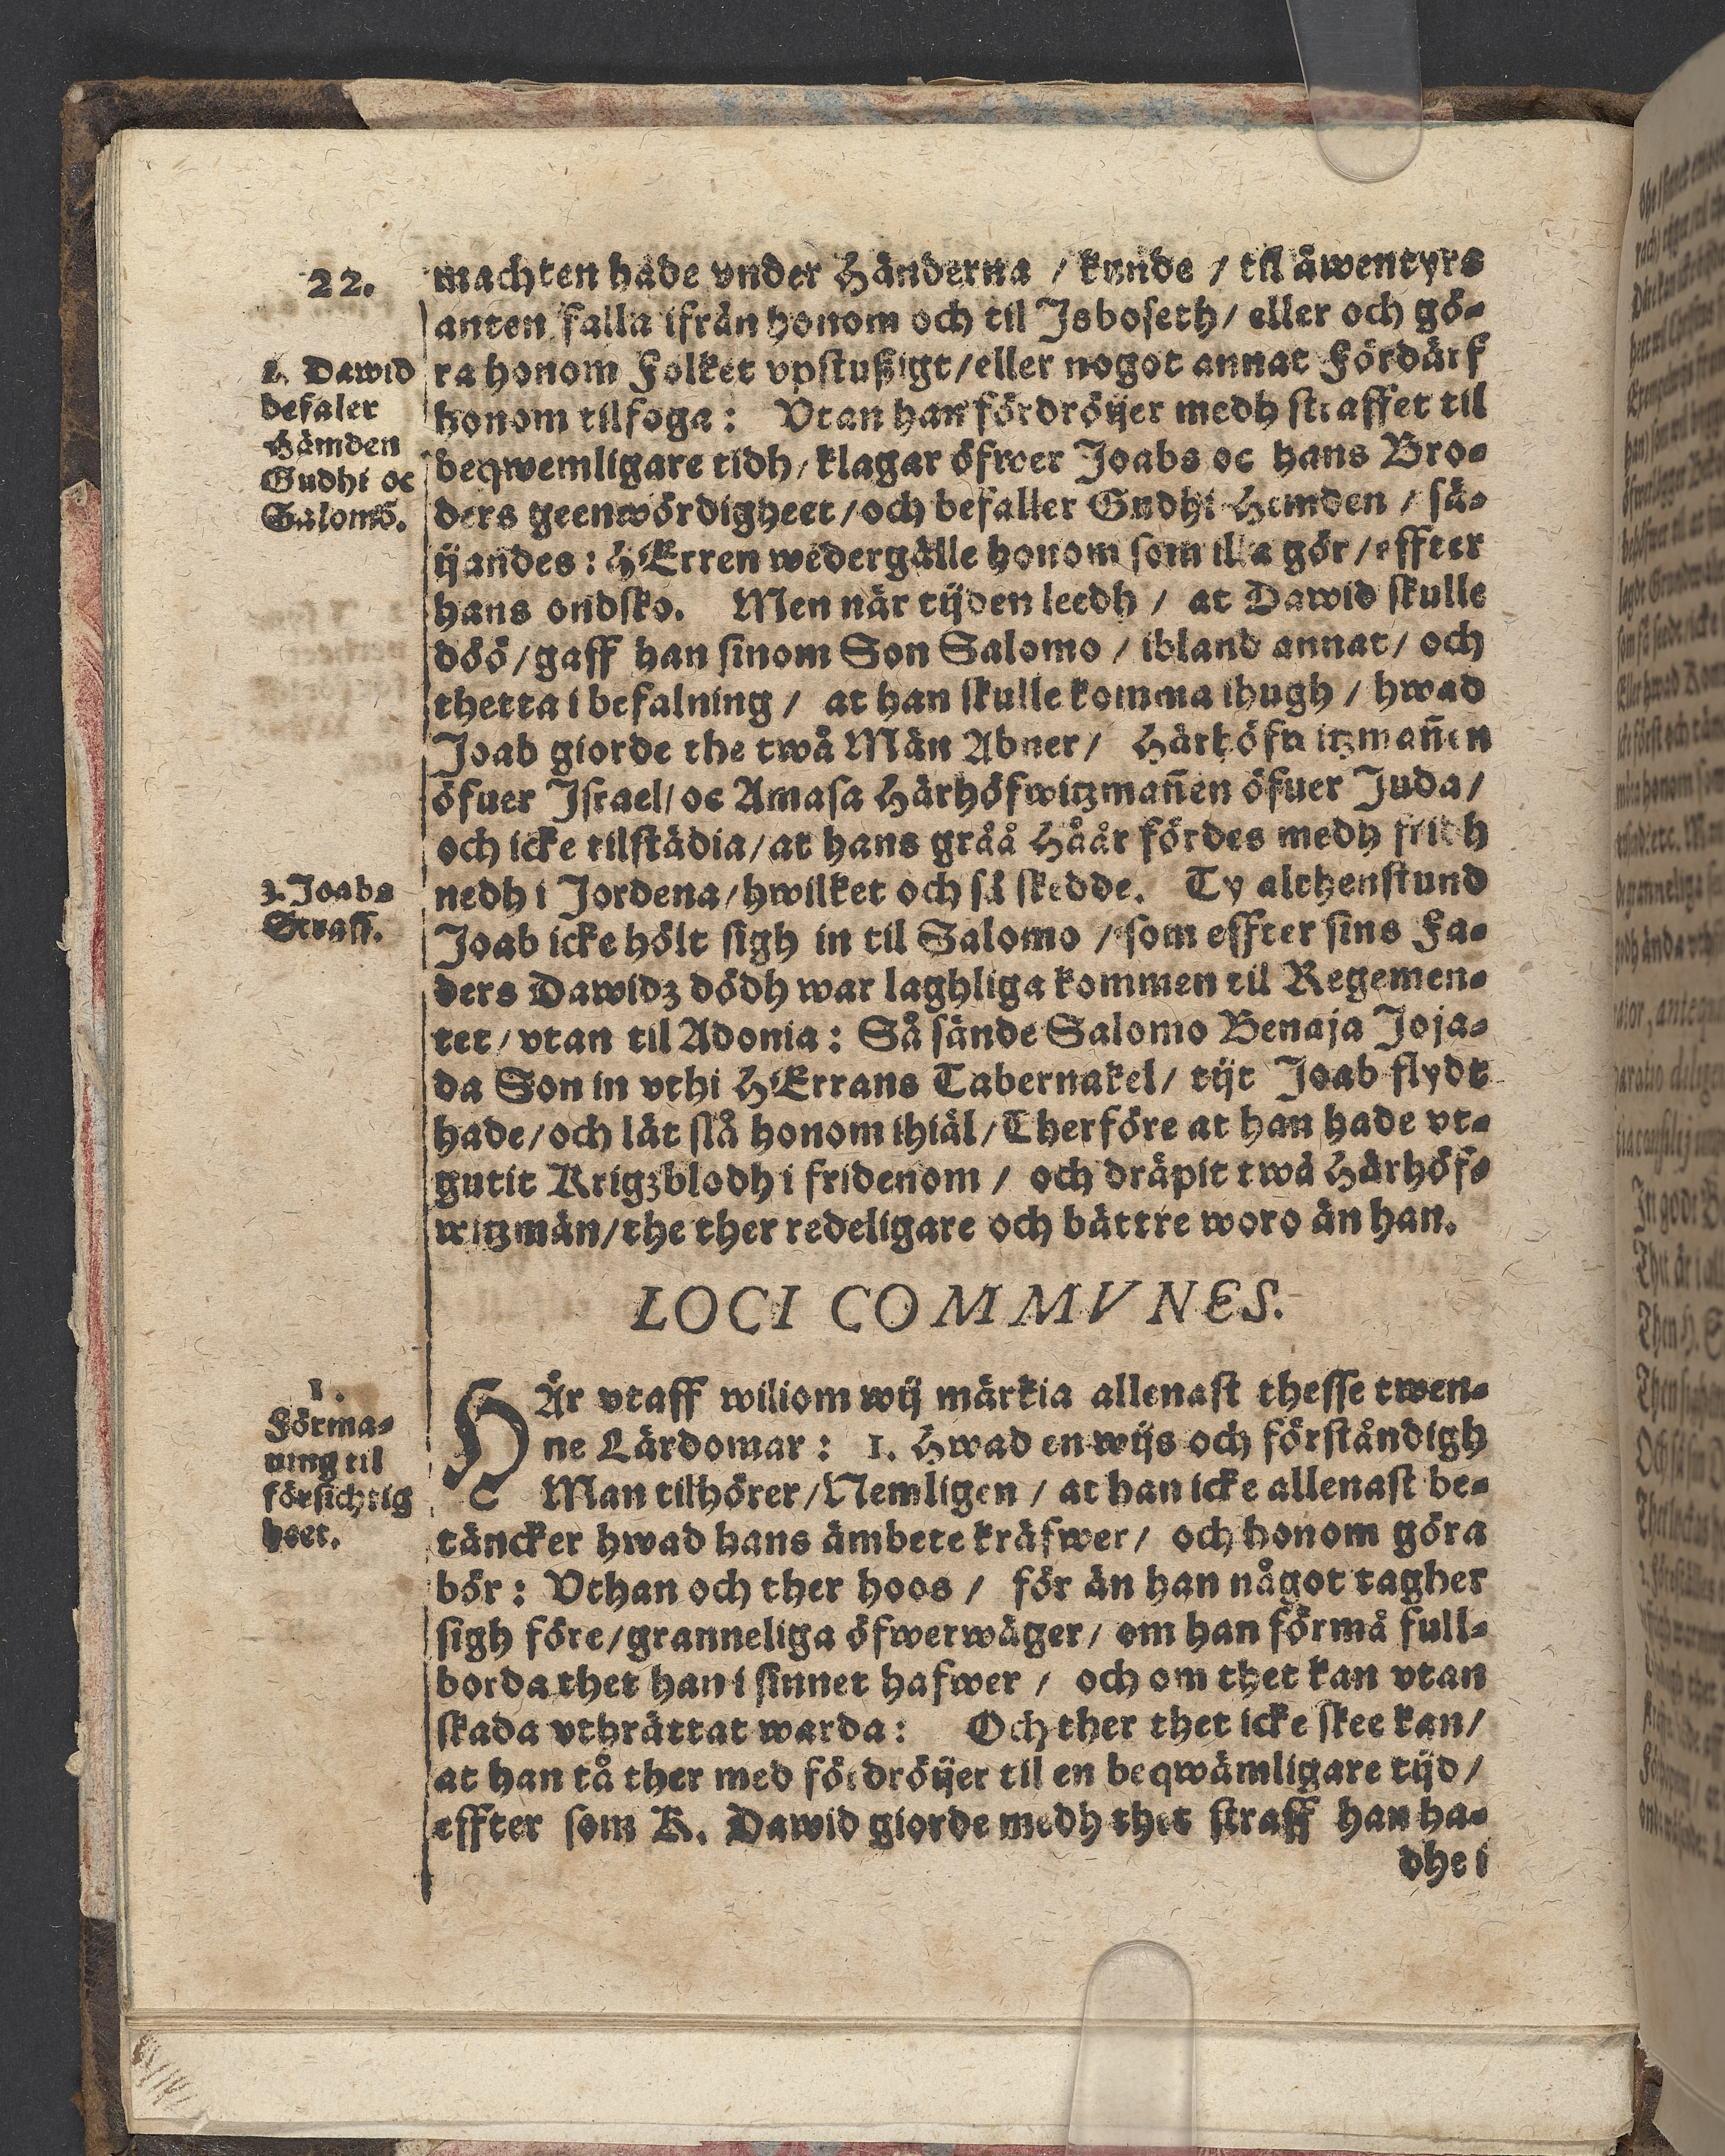 22.
machten hade vnder Händerna / kunde / til äwentyrs
anten falla ifrån honom och til Jsboseth / eller och gö-
ra honom Folket vpstußigt / eller nogot annat Fördärf
honom tilfoga: Vtan han fördröijer medh straffet til
beqwemligare tidh / klagar öfwer Joabs oc hans Bro-
ders geenwördigheet / och befaller Gudhi Hemden / sä-
ijandes: HErren wedergälle honom som illa gör / effter
hans ondsko. Men när tijden leedh / at Dawid skulle
döö / gaff han sinom Son Salomo / ibland annat / och
thetta i befalning / at han skulle komma ihugh / hwad
Joab giorde the twå Män Abner / Härhöfwitzmañen
öfuer Israel / oc Amasa Härhöfwitzmañen öfuer Juda /
och icke tilstädia / at hans gråå Håår fördes medh fridh
nedh i Jordena / hwilket och så skedde. Ty althenstund
Joab icke hölt sigh in til Salomo / som effter sins Fa-
ders Dawidz dödh war laghliga kommen til Regemen-
tet / vtan til Adonia: Så sände Salomo Benaja Joja-
da Son in vthi HErrans Tabernakel / tijt Joab flydt
hade / och lät slå honom ihiäl / Therföre at han hade vt-
gutit Krigzblodh i fridenom / och dräpit twå Härhöf-
witzmän / the ther redeligare och bättre woro än han.
2. Dawid
befaler
Hämden
Gudhi oc
Salomō.
3. Joabs
Straff.
LOCI COMMVNES.
HÄr vtaff wiliom wij märkia allenast thesse twen-
ne Lärdomar: 1. Hwad en wijs och förståndigh
Man tilhörer / Nemligen / at han icke allenast be-
täncker hwad hans ämbete kräfwer / och honom göra
bör: Vthan och ther hoos / för än han något tagher
sigh före / granneliga öfwerwäger / om han förmå full-
borda thet han i sinnet hafwer / och om thet kan vtan
skada vthrättat warda: Och ther thet icke skee kan /
at han tå ther med fördröijer til en beqwämligare tijd /
effter som K. Dawid giorde medh thet straff han ha-
dhe i
1.
Förma-
ning til
försichtig
heet.